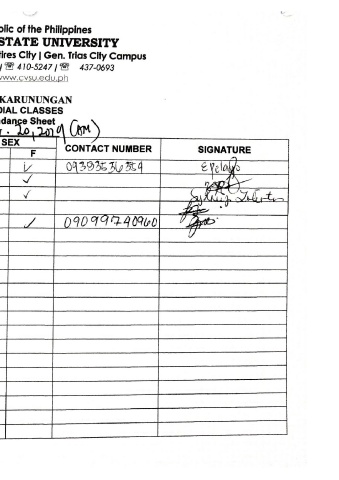 blic of the Philippines
STATE UNIVERSITY
ires City | Gen. Trias City Campus
| ☏ 410-5247 | ☏ 437-0693
www.cvsu.edu.ph
KARUNUNGAN
DIAL CLASSES
ndance Sheet
. 20, 2019 (AM)
SEX
F CONTACT NUMBER SIGNATURE
✓ 09383536384
✓
✓
✓ 09099740960